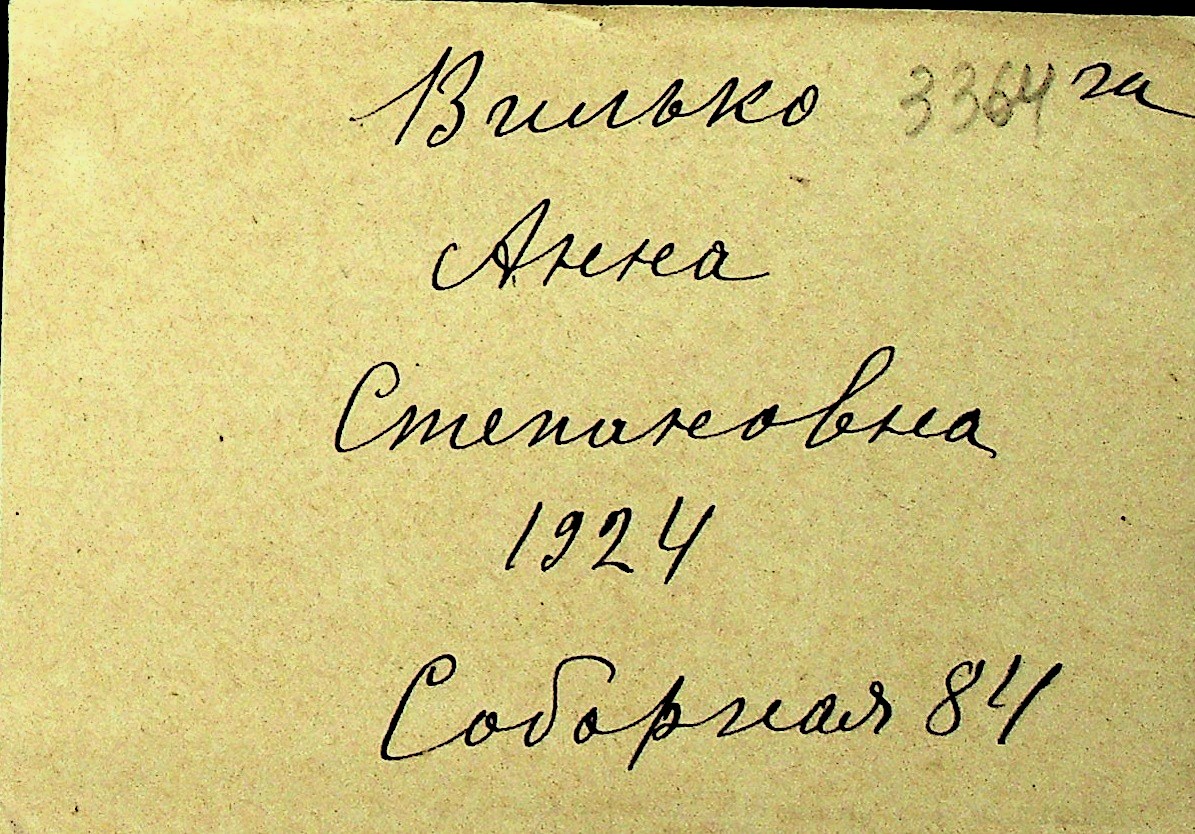 Вилько 3364 га
Анна
Степановна
1924
Соборная 84